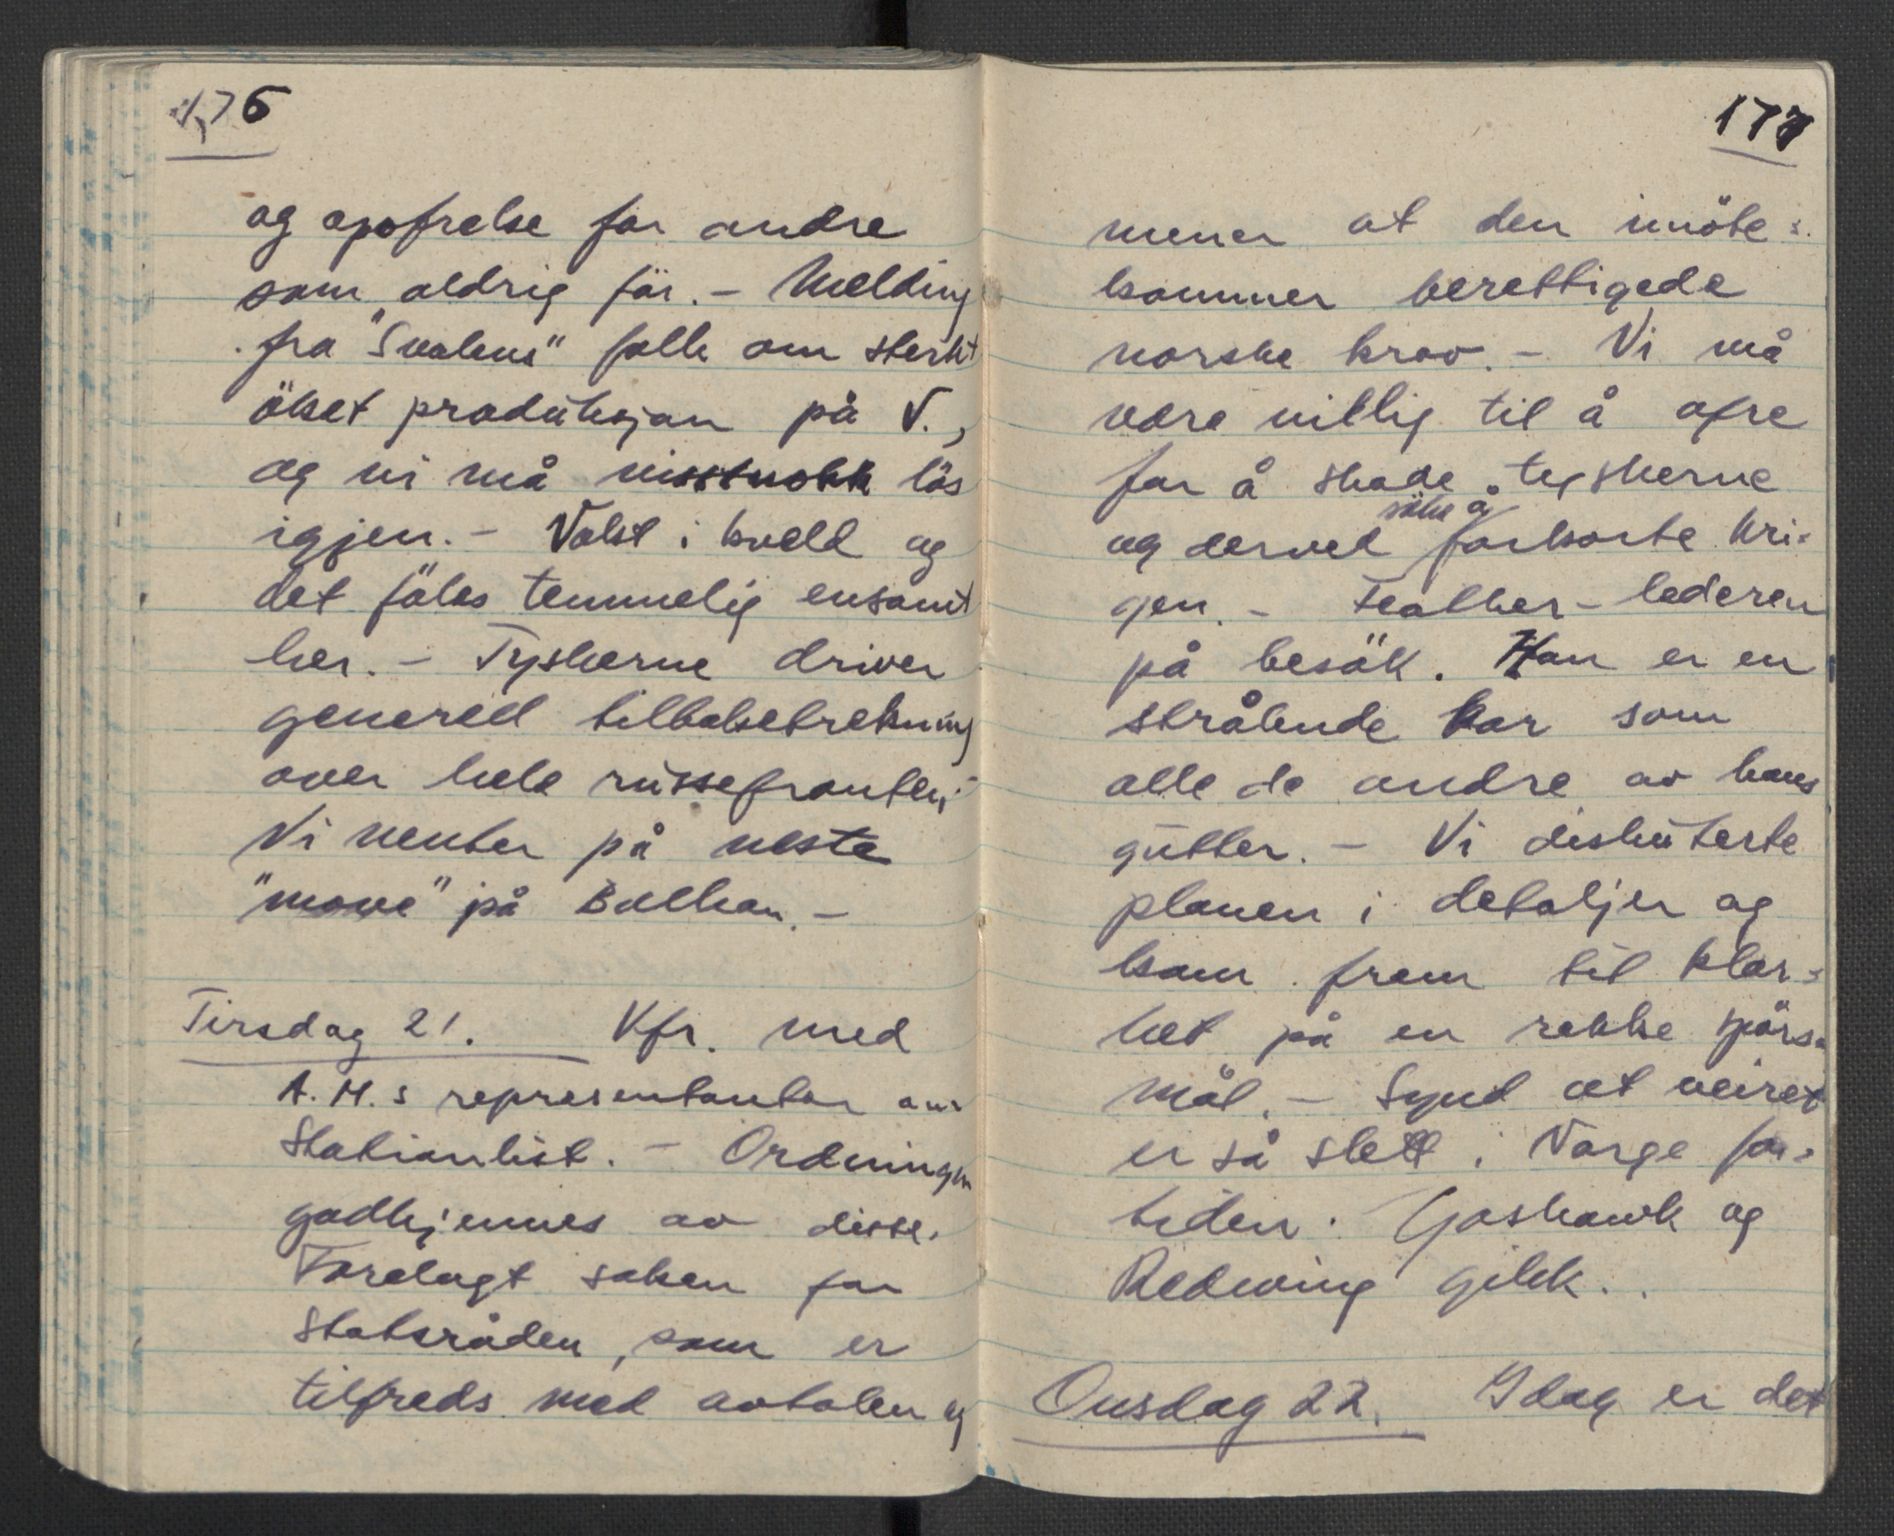 176
og opofrelse for andre
som aldrig før. - Melding
fra "Svalens" folk om sterkt
öket produksjon på V.,
og vi må visstnokk lös
igjen. - Vakt i kveld og
det föles temmelig ensomt
her. - Tyskerne driver
generell tilbaketrekning
over hele russefronten.
Vi venter på neste
"move" på Balkan. -
Tirsdag 21. Kfr. med
A.M.s representanter om
Stationlist. - Ordningen
godkjennes av disse.
Forelagt saken for
Statsråden, som er
tilfreds med avtalen og
177
mener at den imöte=
kommer berettigede
norske krav. - Vi må
være villig til å ofre
for å skade tyskerne
og derved söke å forkorte kri=
gen. - Feather-lederen
på besök. Han er en
strålende kar som
alle de andre av hans
gutter. - Vi diskuterte
planen i detaljer og
kom frem til klar=
het på en rekke spörs=
mål. - Synd at veiret
er så slett i Norge for=
tiden. Goshawk og
Redwing gikk.
Onsdag 22. Idag er det